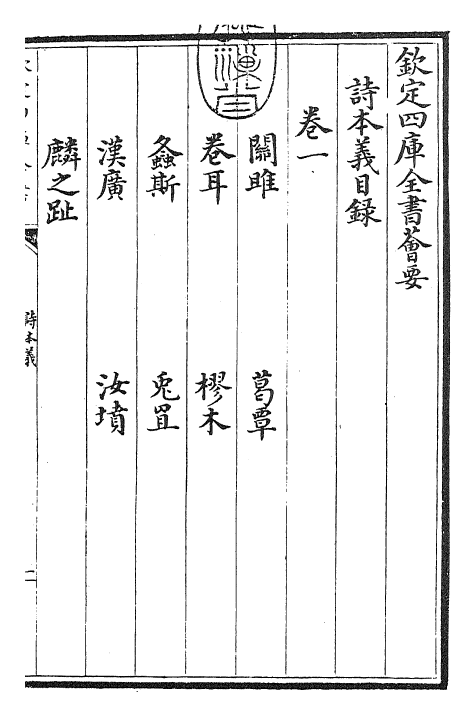 欽定四庫全書薈要
詩本義目錄
卷一
關雎 葛覃
卷耳 樛木
螽斯 兎罝
漢廣 汝墳
麟之趾
詩本義
一